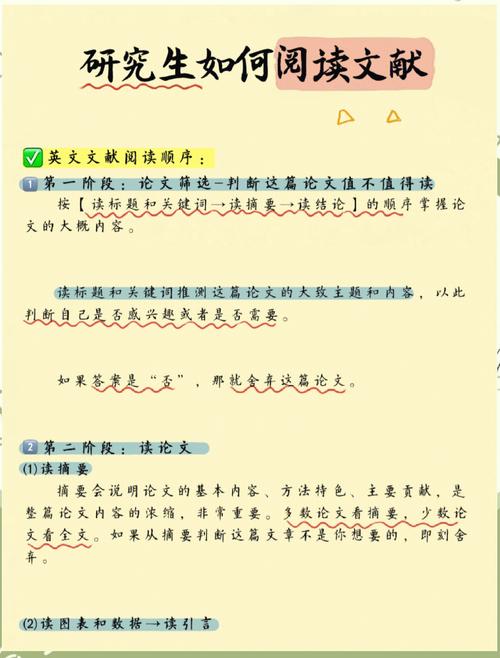 研究生如何阅读文献
英文文献阅读顺序：
1 第一阶段：论文筛选-判断这篇论文值不值得读
按【读标题和关键词→读摘要→读结论】的顺序掌握论
文的大概内容。
读标题和关键词推测这篇论文的大致主题和内容，以此
判断自己是否感兴趣或者是否需要。
如果答案是“否”，那就舍弃这篇论文。
2 第二阶段：读论文
(1)读摘要
摘要会说明论文的基本内容、方法特色、主要贡献，是
整篇论文内容的浓缩，非常重要。多数论文看摘要，少数论
文看全文。如果从摘要判断这篇文章不是你想要的，即刻舍
弃。
(2)读图表和数据→读引言